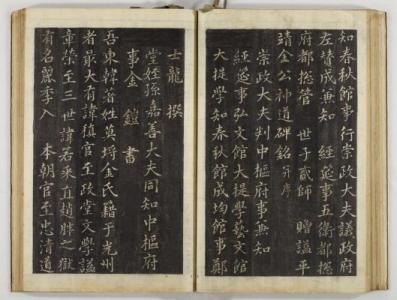 知春秋館事行崇政大夫議政府
左贊成兼知　經筵事五衛都摠
府都摠管　世子貳師　贈謚平
靖金公神道碑銘并序
崇政大夫判中樞府事兼知
經筵事弘文館大提學藝文館
大提學知春秋館成均館事鄭
士龍　撰
堂姪孫嘉善大夫同知中樞府
事金　鎧　書
吾東韓著姓莫埒金氏籍于光州
者最大有諱稹官至政堂文學謚
章榮至三世諱若乘直趙胖之獄
有名麗季入　本朝官至忠清道